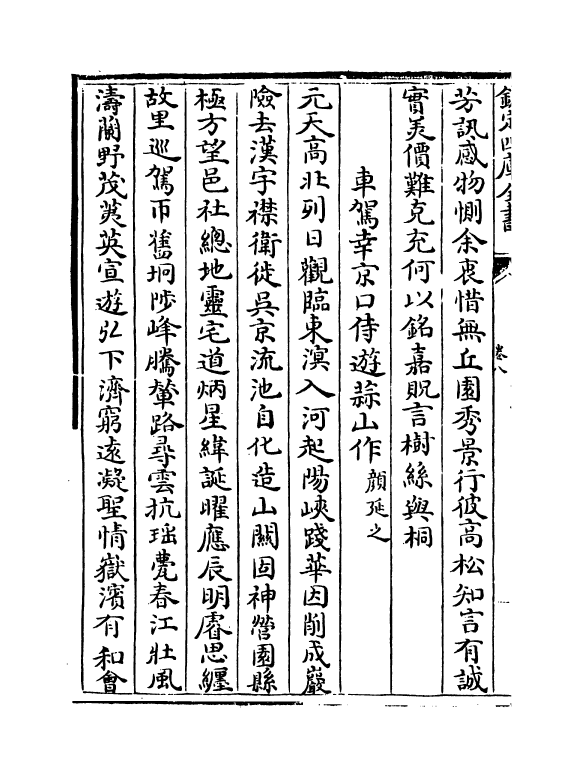 欽定四庫全書
卷八
芳訊感物惻余衷惜無丘園秀景行彼高松知言有誠
實美價難克充何以銘嘉貺言樹絲與桐
車駕幸京口侍遊蒜山作 顏延之
元天高北列日觀臨東溟入河起陽峽踐華因削成巖
險去漢宇襟衛徙吳京流池自化造山關固神營園縣
極方望邑社總地靈宅道炳星緯誕曜應辰明睿思纏
故里巡駕帀舊坰陟峰騰輦路尋雲抗瑤甍春江壯風
濤蘭野茂荑英宣遊弘下濟窮遠凝聖情嶽濱有和會